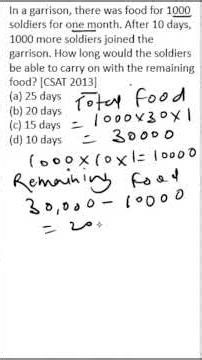 In a garrison, there was food for 1000
soldiers for one month. After 10 days,
1000 more soldiers joined the
garrison. How long would the soldiers
be able to carry on with the remaining
food? [CSAT 2013]
(a) 25 days
(b) 20 days
(c) 15 days
(d) 10 day
Total food
= 1000×30×1
= 30000
1000×10×1=10000
Remaining food
30,000-10000
= 20